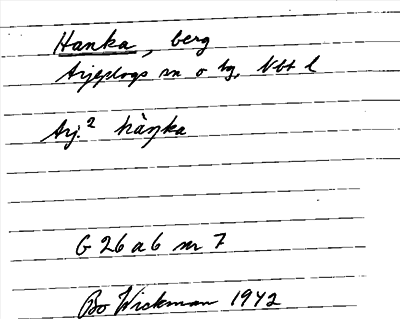 Hanka, berg
Arjeplogs sn o tg, Nbt l
Arj.² hàŋka
G 26 a 6 nr 7
Bo Wickman 1942